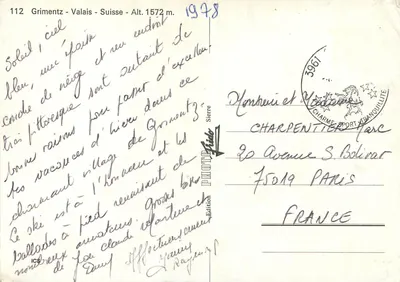 112 Grimentz - Valais - Suisse - Alt. 1572 m.
1978
Soleil, ciel
bleu, une
couche de neige et un endroit
très pittoresque sont autant de
bonnes raisons pour passer d'excellen-
tes vacances d'hiver dans ce
charmant village de Grimentz.
Ce ski est à l'honneur et les
ballades à pied ravissent de
nombreux amateurs. Grosses bises
de Jean Claude
Affectueusement
Sierre
PHOTO
Editions
3961
CHARME SPORT TRANQUILLITE
Monsieur et Madame
CHARPENTIER Marc
20 Avenue S. Bolivar
75019 PARIS
FRANCE